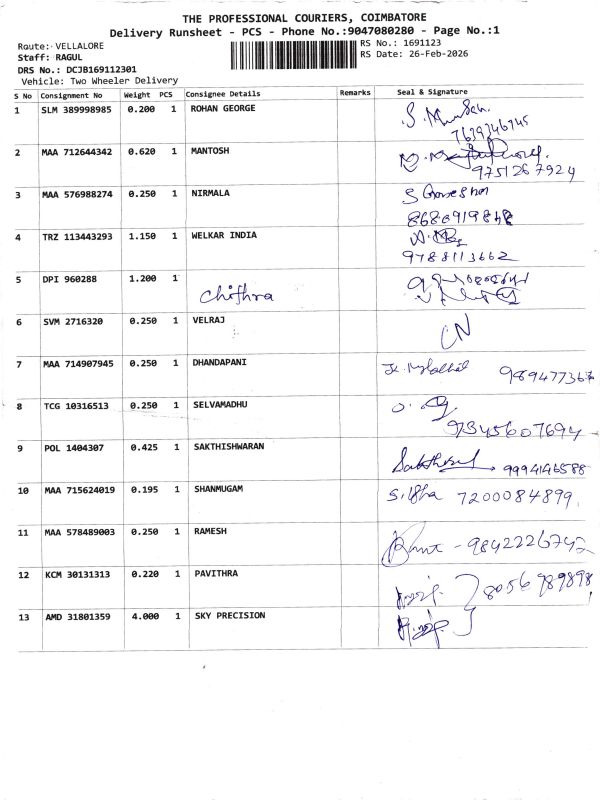 THE PROFESSIONAL COURIERS, COIMBATORE
Delivery Runsheet - PCS - Phone No.:9047080280 - Page No.:1
Route: VELLALORE
RS No.: 1691123
Staff: RAGUL
RS Date: 26-Feb-2026
DRS No.: DCJB169112301
Vehicle: Two Wheeler Delivery
S No Consignment No Weight PCS Consignee Details Remarks Seal & Signature
1 SLM 389998985 0.200 1 ROHAN GEORGE
7639346745
2 MAA 712644342 0.620 1 MANTOSH
9751267924
3 MAA 576988274 0.250 1 NIRMALA
4 TRZ 113443293 1.150 1 WELKAR INDIA
9788113662
5 DPI 960288 1.200 1 Chithra
6 SVM 2716320 0.250 1 VELRAJ
7 MAA 714907945 0.250 1 DHANDAPANI
8 TCG 10316513 0.250 1 SELVAMADHU
9345607694
9 POL 1404307 0.425 1 SAKTHISHWARAN 9994146588
10 MAA 715624019 0.195 1 SHANMUGAM 7200084899
11 MAA 578489003 0.250 1 RAMESH - 9842226742
12 KCM 30131313 0.220 1 PAVITHRA 8056989898
13 AMD 31801359 4.000 1 SKY PRECISION